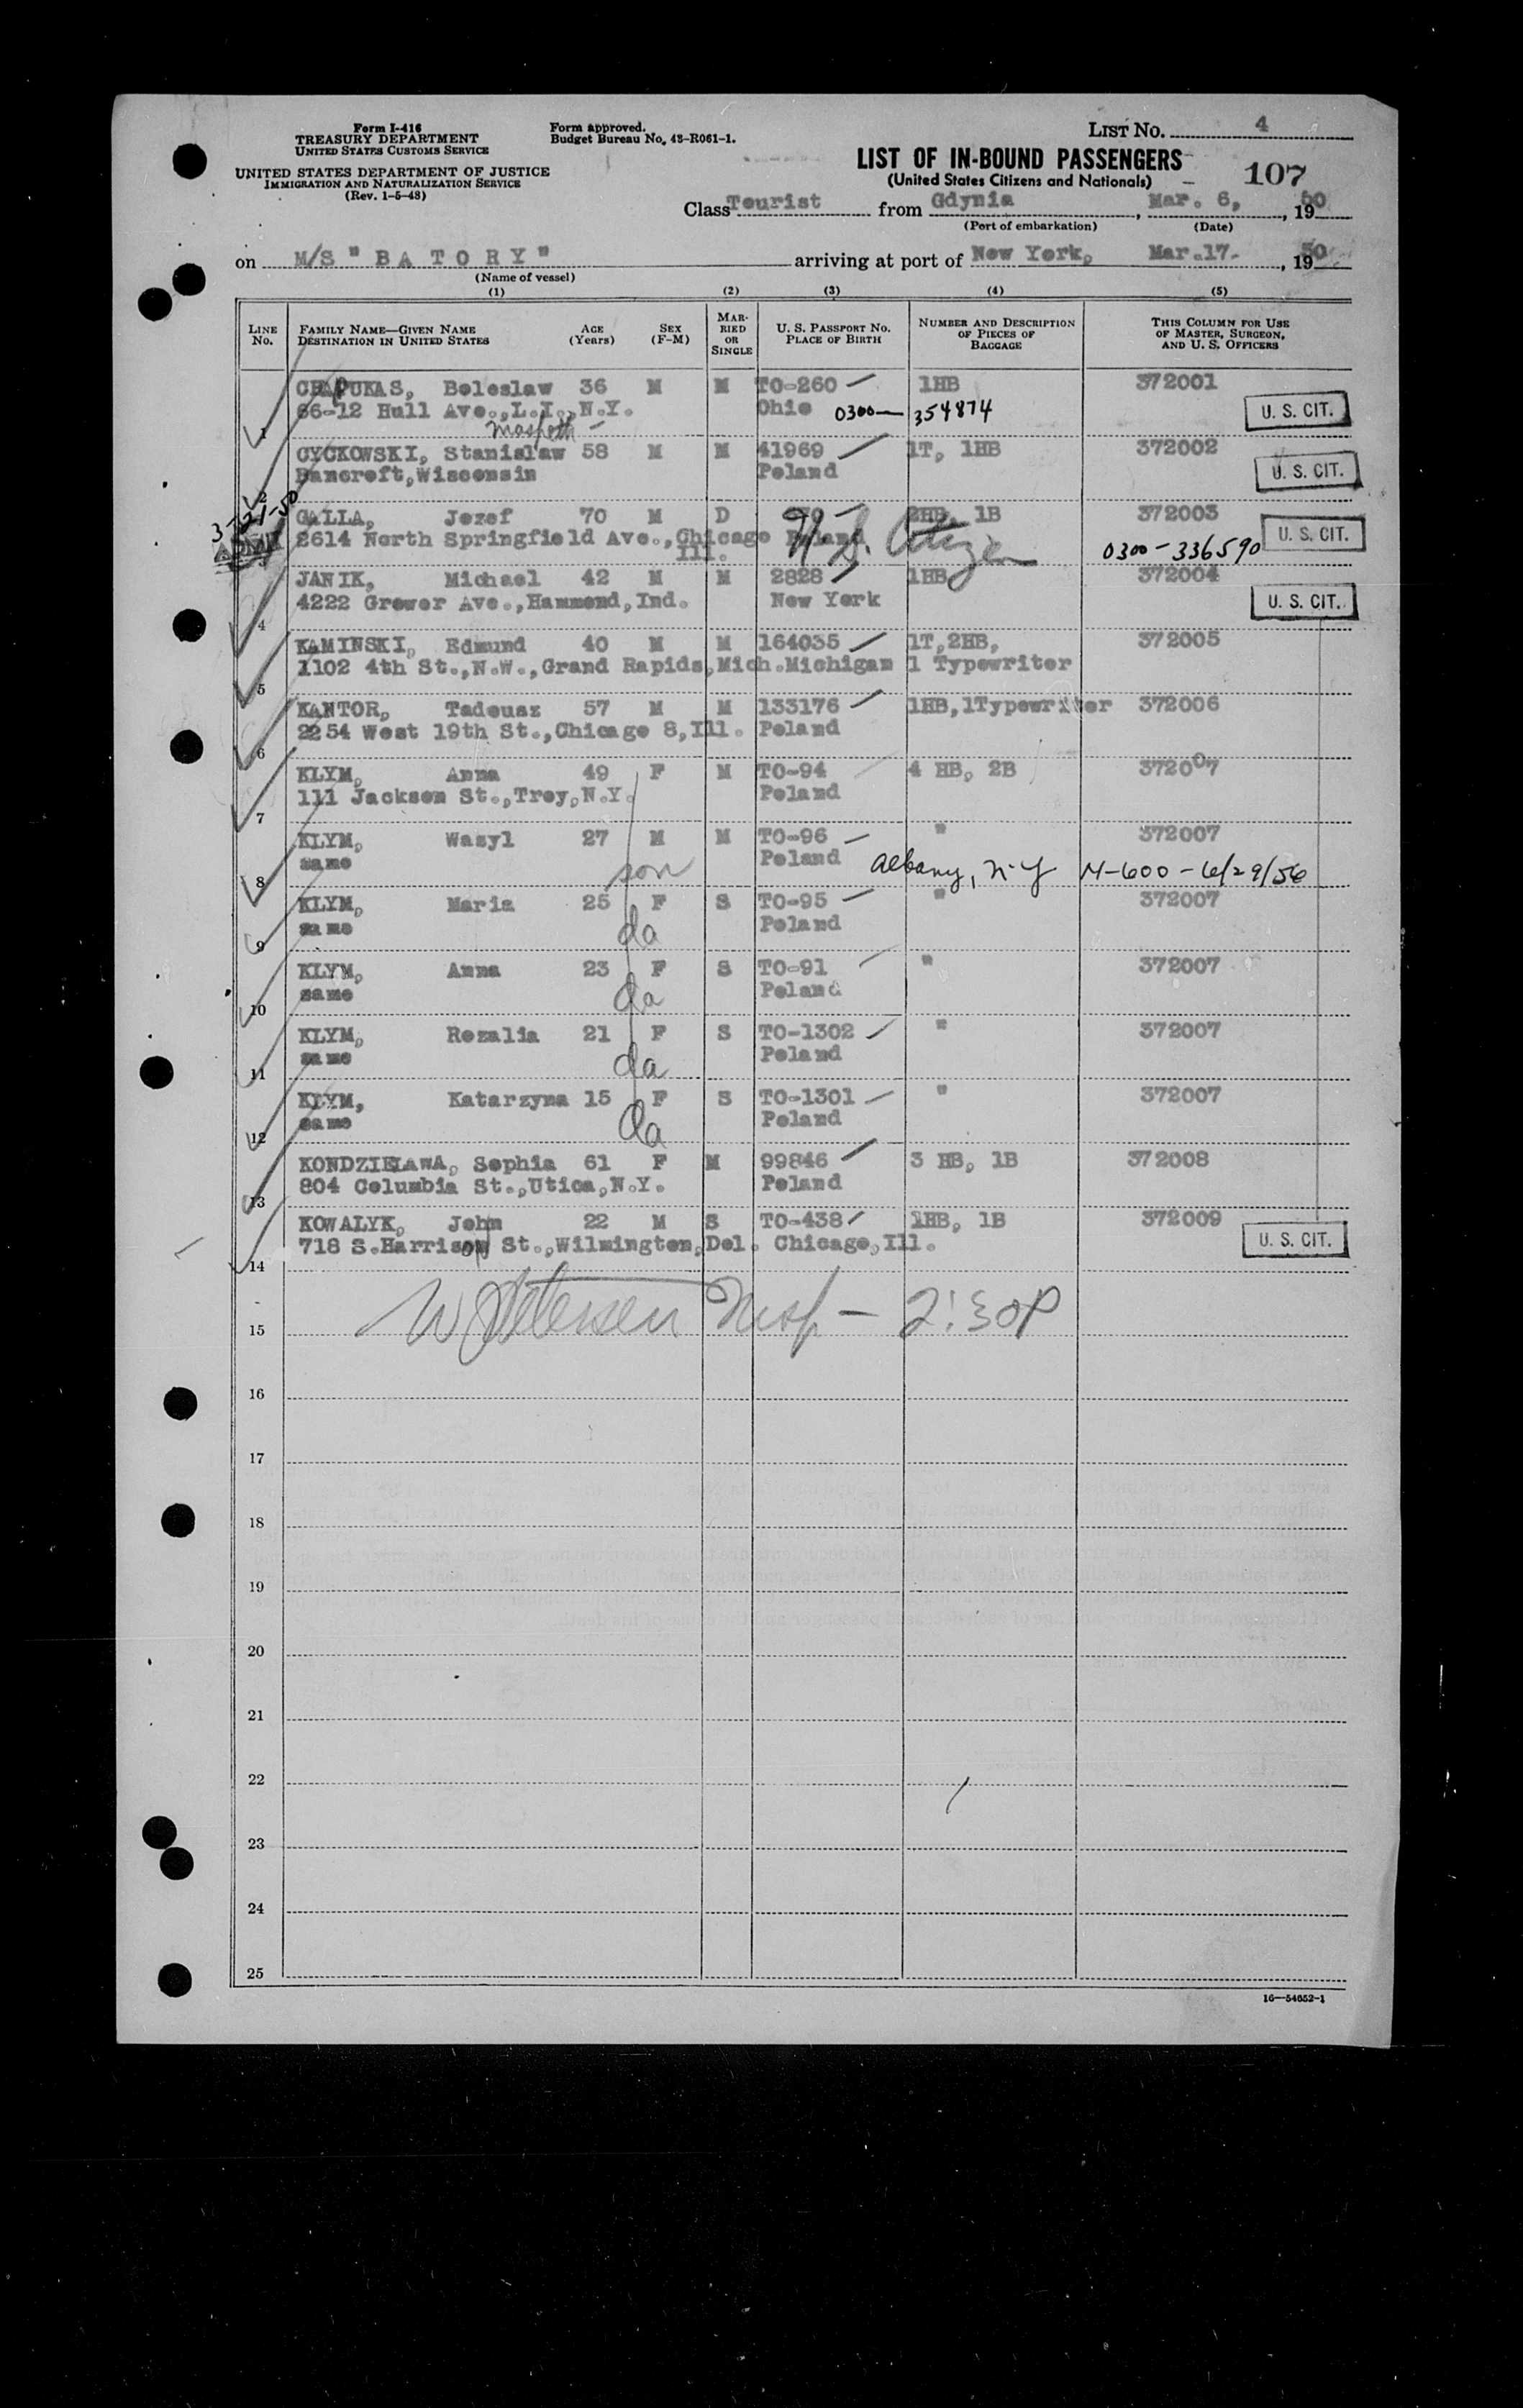 Form I-416
TREASURY DEPARTMENT
UNITED STATES CUSTOMS SERVICE
UNITED STATES DEPARTMENT OF JUSTICE
IMMIGRATION AND NATURALIZATION SERVICE
(Rev. 1-5-48)
Form approved.
Budget Bureau No. 43-R061-1.
LIST NO. 4
LIST OF IN-BOUND PASSENGERS
(United States Citizens and Nationals)
107
Class Tourist from Gdynia, Mar. 6, 1950
(Port of embarkation) (Date)
on M/S "BATORY" arriving at port of New York, Mar.17. , 1950
(Name of vessel)
(1) (2) (3) (4) (5)
LINE NO. FAMILY NAME—GIVEN NAME DESTINATION IN UNITED STATES AGE (Years) SEX (F-M) MARRIED OR SINGLE U. S. PASSPORT NO. PLACE OF BIRTH NUMBER AND DESCRIPTION OF PIECES OF BAGGAGE THIS COLUMN FOR USE OF MASTER, SURGEON, AND U. S. OFFICERS
Boleslaw 36 M M TO-260 1HB 372001
66-12 Hull Ave.,L.I.,N.Y. Ohio 0300— 354874 U. S. CIT.
1 Maspeth
CYCKOWSKI, Stanislaw 58 M M 41969 1T, 1HB 372002
Bancroft,Wisconsin Poland U. S. CIT.
2
3-21-50
GALLA, Jozef 70 M D 2HB, 1B 372003
2614 North Springfield Ave.,Chicago Poland U. S. Citizen 0300-336590 U. S. CIT.
Ill.
JANIK, Michael 42 M M 2828 1HB 372004
4222 Grower Ave.,Hammond,Ind. New York U. S. CIT.
4
KAMINSKI, Edmund 40 M M 164035 1T,2HB, 372005
1102 4th St.,N.W.,Grand Rapids,Mich.Michigan 1 Typewriter
5
KANTOR, Tadeusz 57 M M 133176 1HB,1Typewriter 372006
2254 West 19th St.,Chicago 8,Ill. Poland
6
KLYM, Anna 49 F M TO-94 4 HB, 2B 372007
111 Jackson St.,Troy,N.Y. Poland
7
KLYM, Wasyl 27 M M TO-96 " 372007
same son Poland Albany, N-Y N-600-6/29/56
8
KLYM, Maria 25 F S TO-95 " 372007
same da Poland
9
KLYM, Anna 23 F S TO-91 " 372007
same da Poland
10
KLYM, Rozalia 21 F S TO-1302 " 372007
same da Poland
11
KLYM, Katarzyna 15 F S TO-1301 " 372007
same da Poland
12
KONDZIELAWA, Sophia 61 F M 99846 3 HB, 1B 372008
804 Columbia St.,Utica,N.Y. Poland
13
KOWALYK, John 22 M S TO-438 1HB, 1B 372009
718 S.Harrison St.,Wilmington,Del. Chicago,Ill. U. S. CIT.
14
W Petersen Insp — 2:30P
15
16
17
18
19
20
21
22
23
24
25
16—54652-1